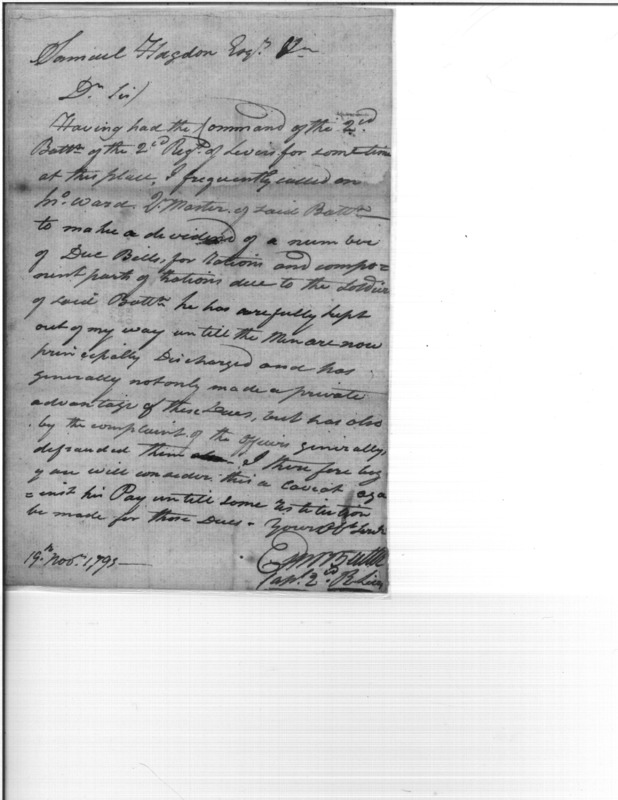 Samuel Hogdon Esqr.
Dr. Sir/
Having had the Command of the 2cd
Battn. of the 2cd Regt. of Levies for some time
at this place, I frequently called on
Jno. Ward Q. Master of said Battn.
to make a devidend of a number
of Due Bills, for Rations and compo=
nent parts of Rations due to the Soldiers
of said Battn. he has carefully kept
out of my way untill the Men are now
principally Discharged and has
generally not only made a private
advantage of these Dues, but has also
by the complaint of the officers generally,
defrauded them. I therefore beg
you will consider this a Caveat aga
=inst his Pay untill some restitution
be made for those Dues. Your Obt. Servt.
19th. Novr. 1791
Edwd. Butler
Capt. 2cd R. Levies